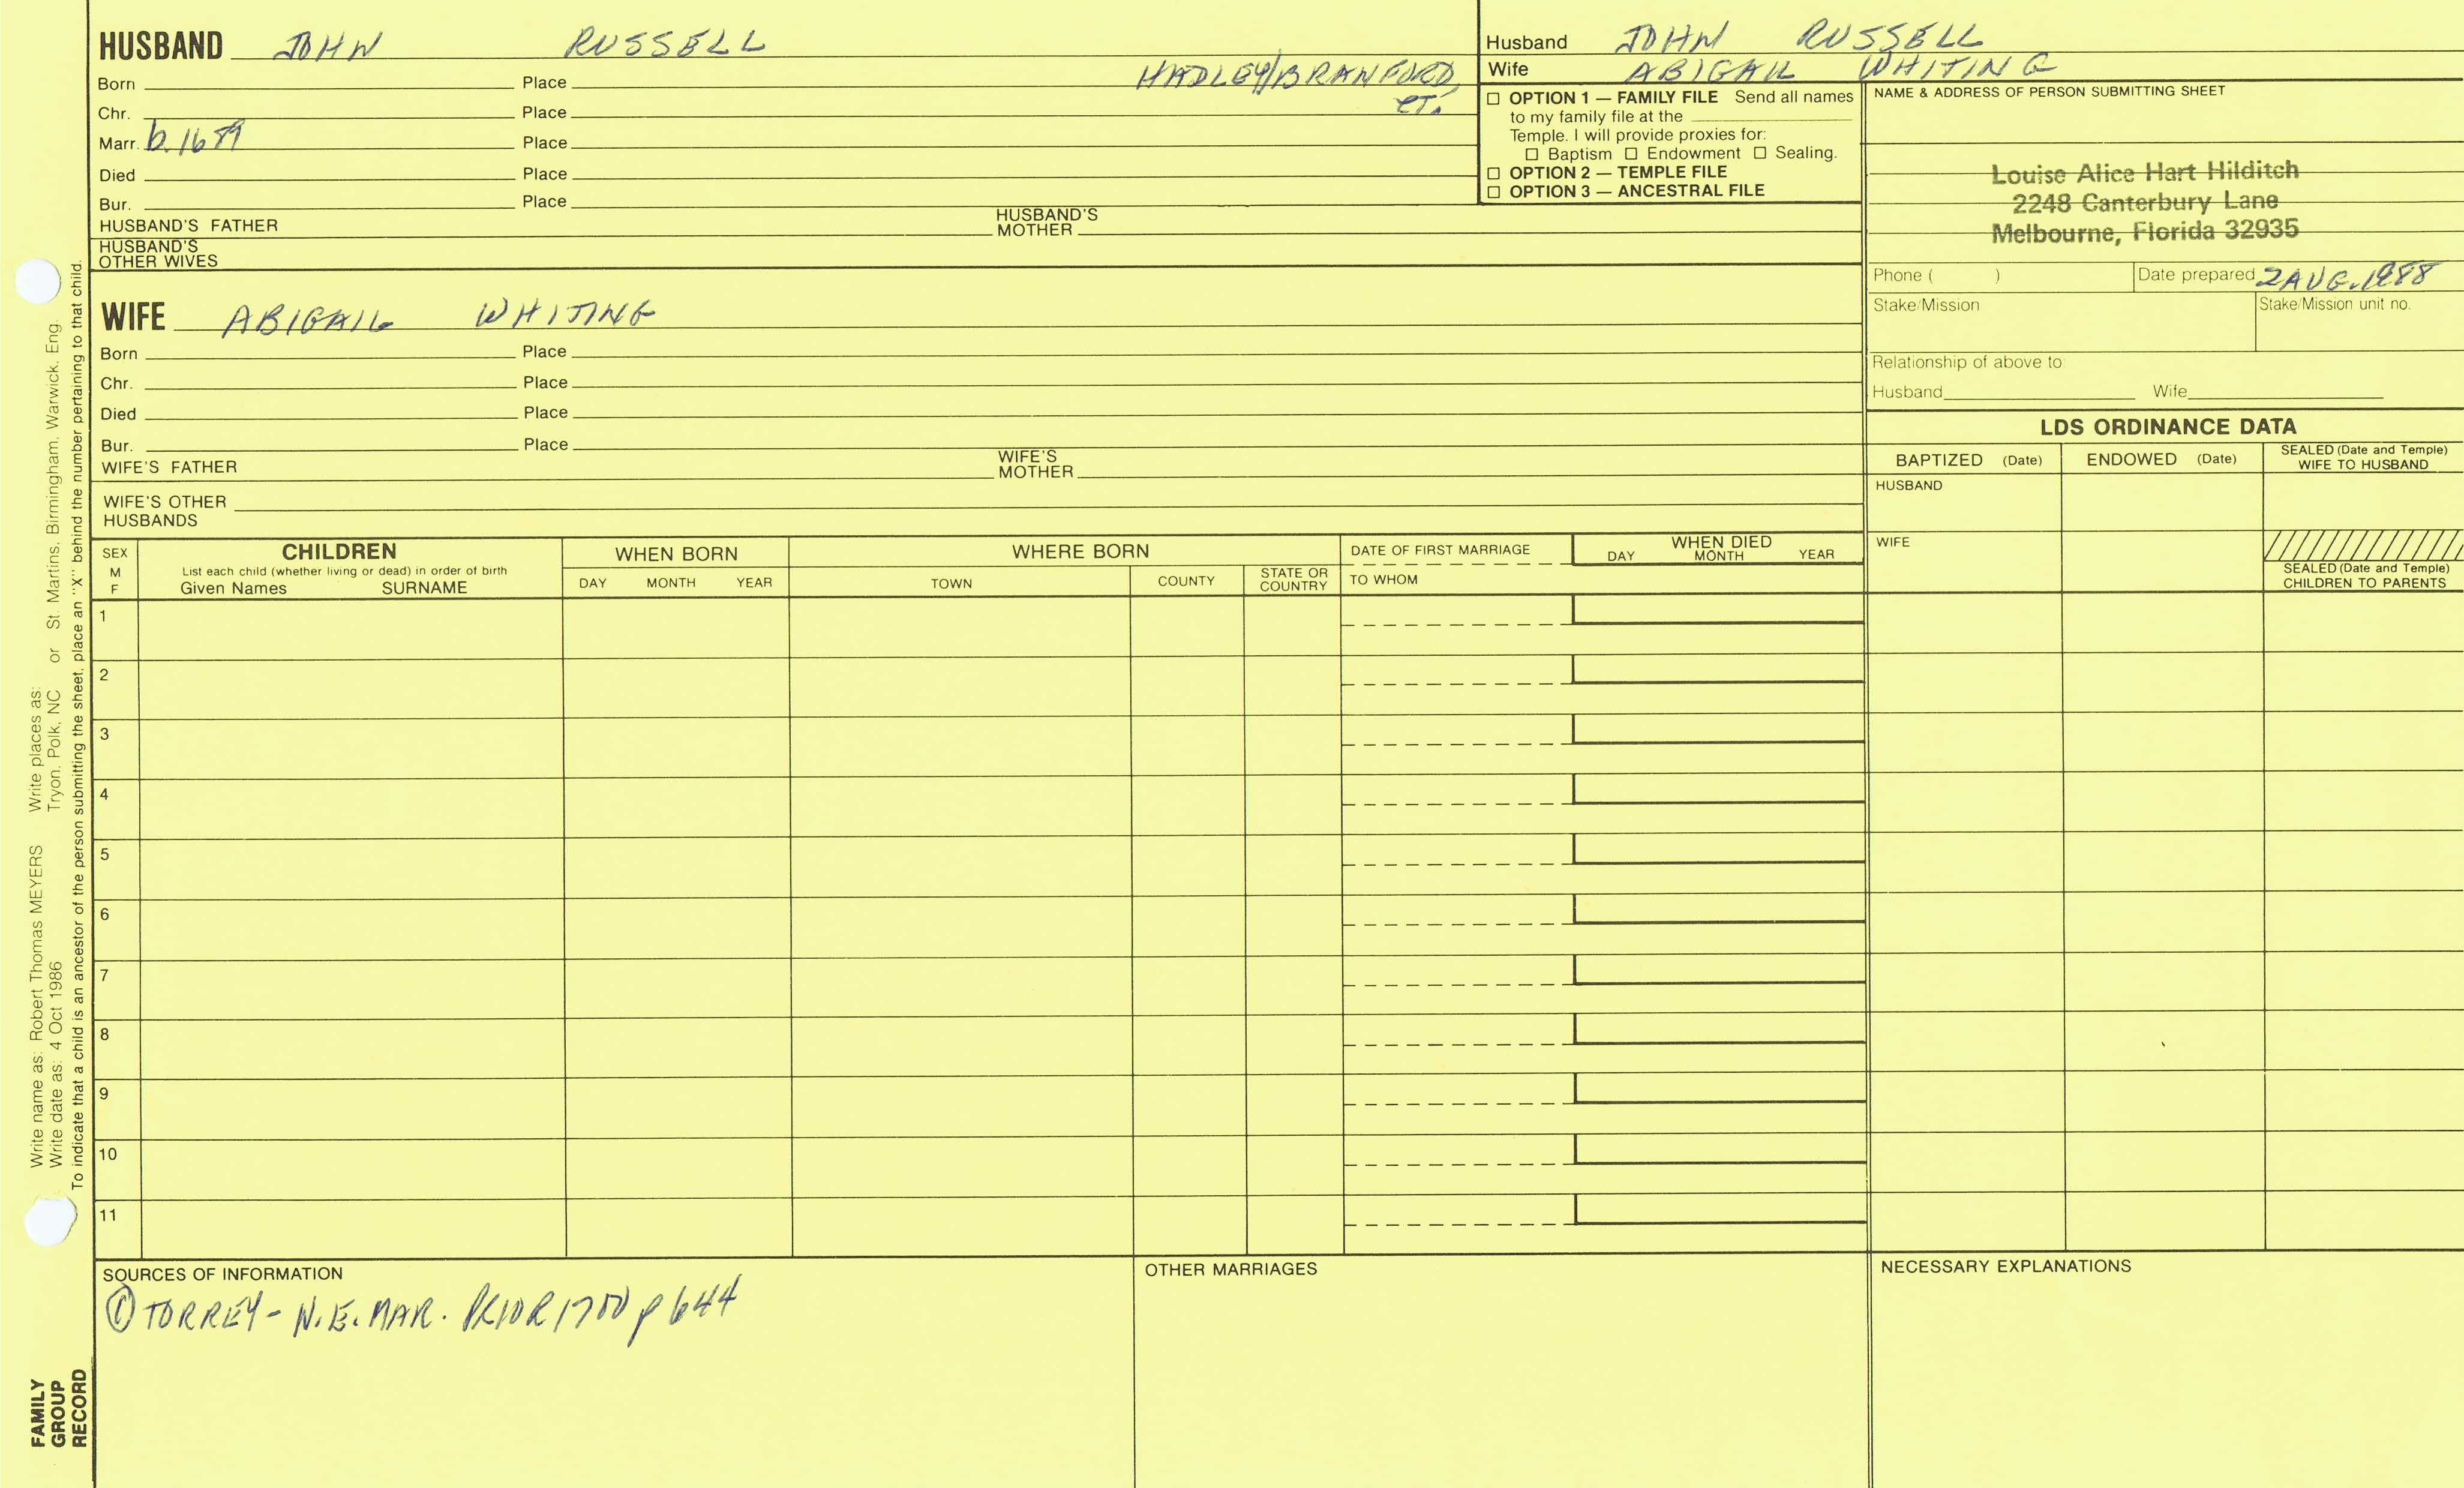 HUSBAND JOHN RUSSELL
Born Place HADLEY/BRANFORD,
Chr. Place CT.
Marr. b. 1689 Place
Died Place
Bur. Place
HUSBAND'S FATHER HUSBAND'S MOTHER
HUSBAND'S OTHER WIVES
Husband JOHN RUSSELL
Wife ABIGAIL WHITING
☐ OPTION 1 — FAMILY FILE Send all names
to my family file at the
Temple. I will provide proxies for:
☐ Baptism ☐ Endowment ☐ Sealing.
☐ OPTION 2 — TEMPLE FILE
☐ OPTION 3 — ANCESTRAL FILE
NAME & ADDRESS OF PERSON SUBMITTING SHEET
Louise Alice Hart Hilditch
2248 Canterbury Lane
Melbourne, Florida 32935
Phone ( ) Date prepared 2 AUG. 1988
Stake/Mission Stake/Mission unit no.
Relationship of above to:
Husband Wife
WIFE ABIGAIL WHITING
Born Place
Chr. Place
Died Place
Bur. Place
WIFE'S FATHER WIFE'S MOTHER
WIFE'S OTHER HUSBANDS
LDS ORDINANCE DATA
BAPTIZED (Date) ENDOWED (Date) SEALED (Date and Temple) WIFE TO HUSBAND
HUSBAND
WIFE
SEALED (Date and Temple)
CHILDREN TO PARENTS
SEX M F
CHILDREN
List each child (whether living or dead) in order of birth
Given Names SURNAME
WHEN BORN
DAY MONTH YEAR
WHERE BORN
TOWN COUNTY STATE OR COUNTRY
DATE OF FIRST MARRIAGE
TO WHOM
WHEN DIED
DAY MONTH YEAR
1
2
3
4
5
6
7
8
9
10
11
SOURCES OF INFORMATION
① TORREY - N.E. MAR. PRIOR 1700 p 644
OTHER MARRIAGES
NECESSARY EXPLANATIONS
Write name as: Robert Thomas MEYERS Write places as:
Write date as: 4 Oct 1986 Tryon, Polk, NC or St. Martins, Birmingham, Warwick, Eng.
To indicate that a child is an ancestor of the person submitting the sheet, place an "X" behind the number pertaining to that child.
FAMILY
GROUP
RECORD